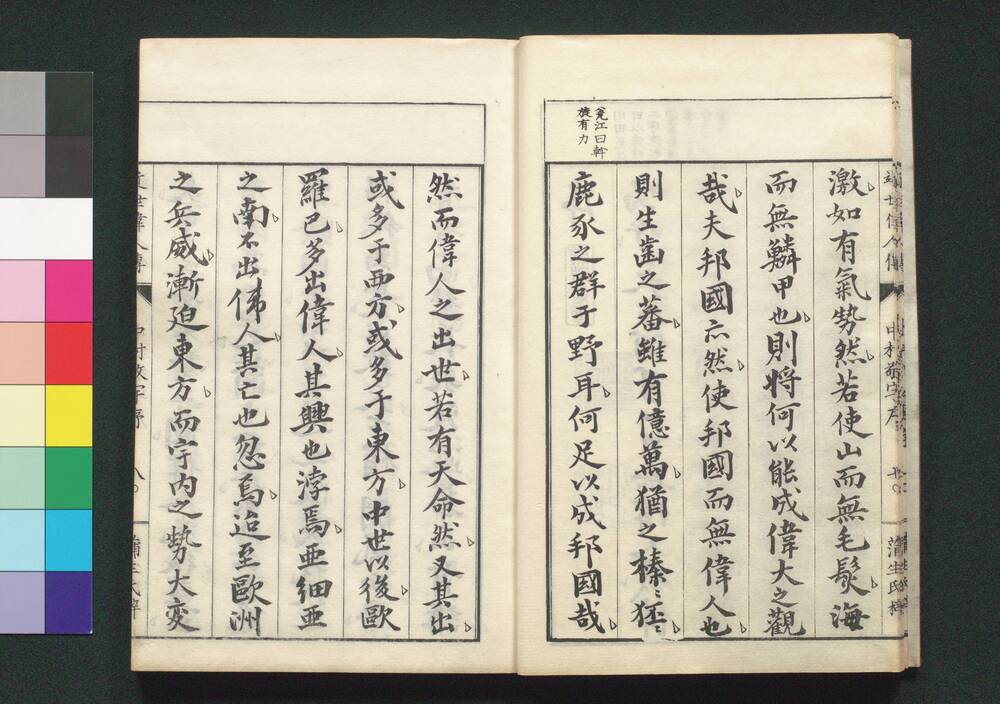 激如有氣勢然若使山而無毛髮海
而無鱗甲也則将何以能成偉大之觀
哉夫邦國亦然使邦國而無偉人也
則生齒之蕃雖有億萬猶之榛〻狉〻
鹿豕之群于野耳何足以成邦國哉
瓮江曰幹
旋有力
然而偉人之出世若有天命然又其出
或多于西方或多于東方中世以後歐
羅巴多出偉人其興也浡焉亜細亜
之南不出偉人其亡也忽焉迨至歐洲
之兵威漸廹東方而宇内之勢大変